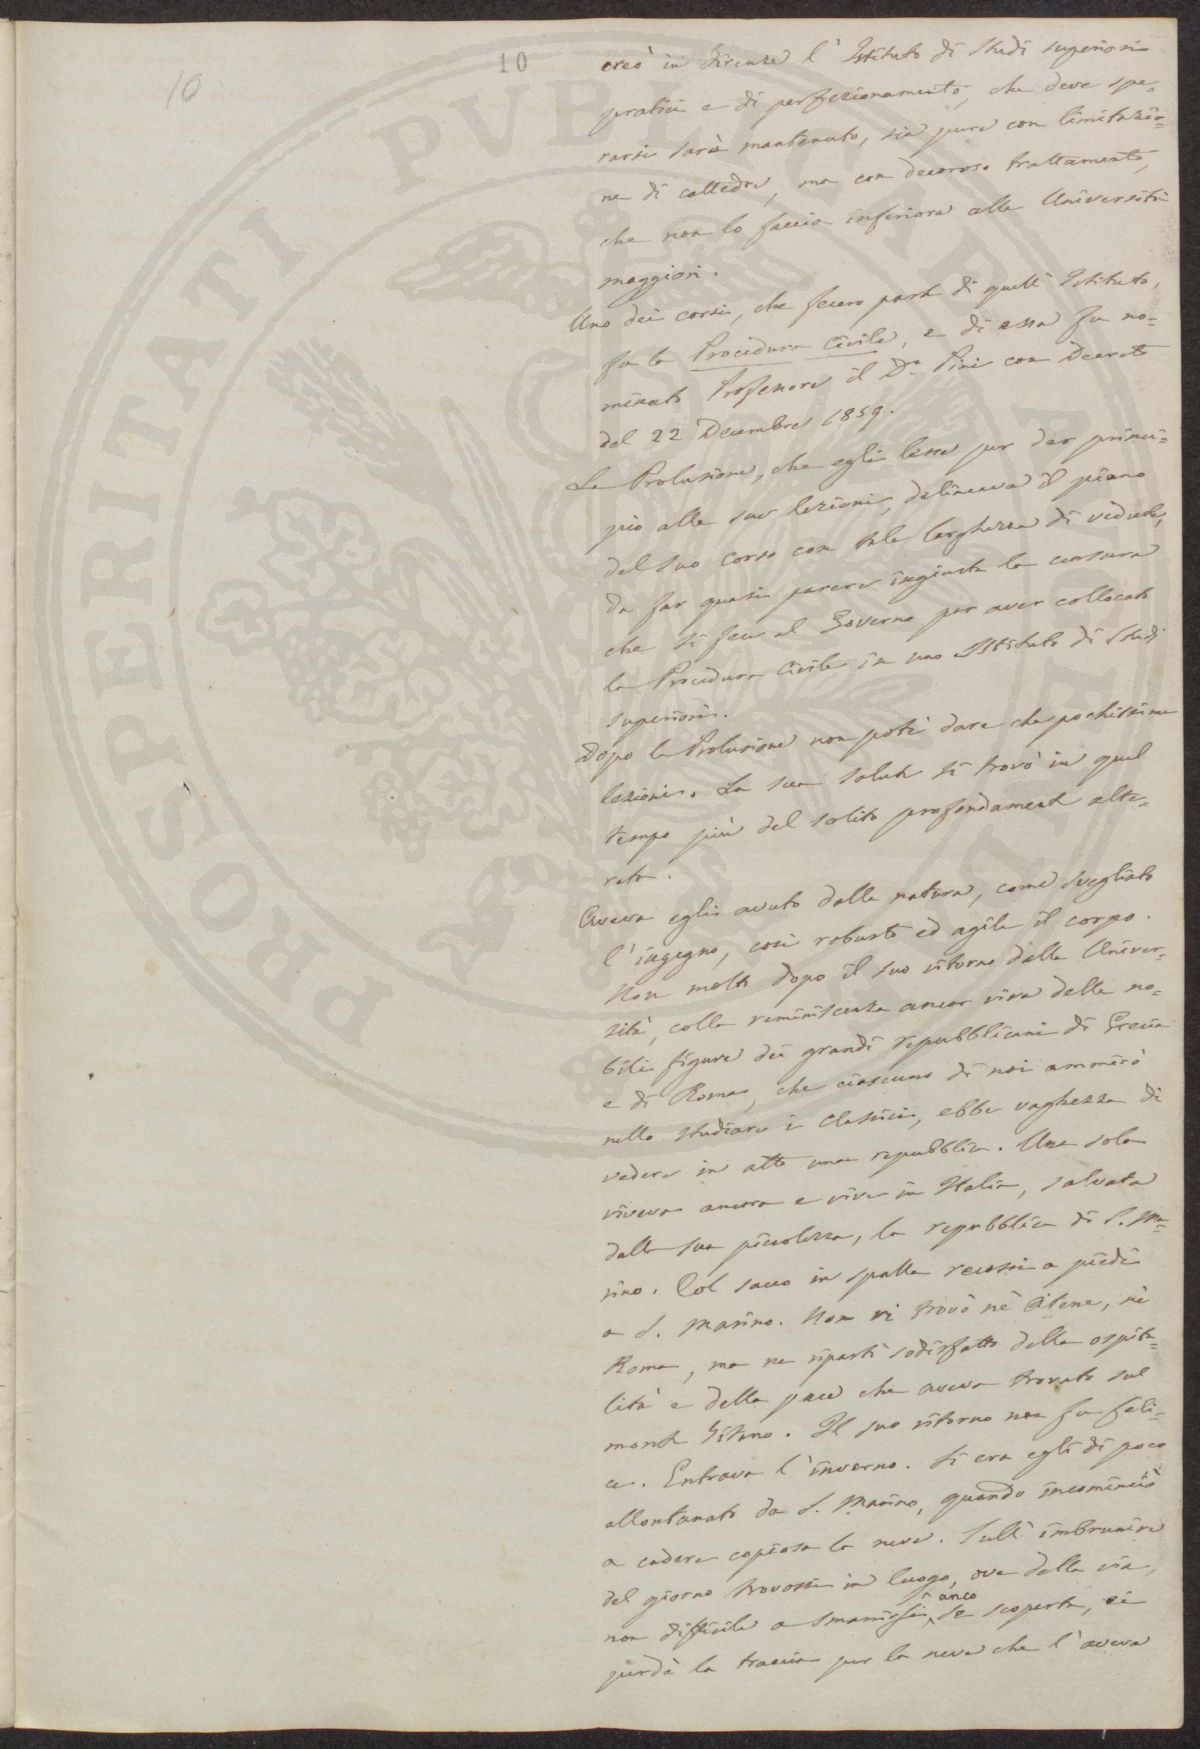 10
10
creò in Firenze l'Istituto di Studi superiori
pratici e di perfezionamento, che deve spe-
rarsi sarà mantenuto, sia pure con limitazio-
ne di cattedre, ma con decoroso trattamento,
che non lo faccia inferiore alle Università
maggiori.
Uno dei corsi, che fecero parte di quell'Istituto,
fu la Procedura Civile, e di essa fu no-
minato Professore il Dr. Pini con Decreto
del 22 Decembre 1859.
La Prolusione, che egli lesse per dar princi-
pio alle sue lezioni, delineava il piano
del suo corso con tale larghezza di vedute,
da far quasi parere ingiusta la censura
che si fece al Governo per aver collocato
la Procedura Civile in uno Istituto di Studi
superiori.
Dopo la Prolusione non potè dare che pochissime
lezioni. La sua salute si trovò in quel
tempo più del solito profondamente alte-
rata.
Aveva egli avuto dalla natura, come svegliato
l'ingegno, così robusto ed agile il corpo.
Non molto dopo il suo ritorno dalla Univer-
sità, colla reminiscenza ancor viva delle no-
bili figure dei grandi repubblicani di Grecia
e di Roma, che ciascuno di noi ammirò
nello studiare i Classici, ebbe vaghezza di
vedere in atto una repubblica. Una sola
viveva ancora e vive in Italia, salvata
dalla sua piccolezza, la repubblica di S. Ma-
rino. Col sacco in spalla recossi a piedi
a S. Marino. Non vi trovò nè Atene, nè
Roma, ma ne ripartì sodisfatto della ospita-
lità e della pace che aveva trovato sul
monte Titano. Il suo ritorno non fu feli-
ce. Entrava l'inverno. Si era egli di poco
allontanato da S. Marino, quando incominciò
a cadere copiosa la neve. Sull'imbrunire
del giorno trovossi in luogo, ove della via,
non difficile a smarrirsi anco se scoperta, si
perdè la traccia per la neve che l'aveva
PROSPERITATI PVBLICAE AVGENDAE